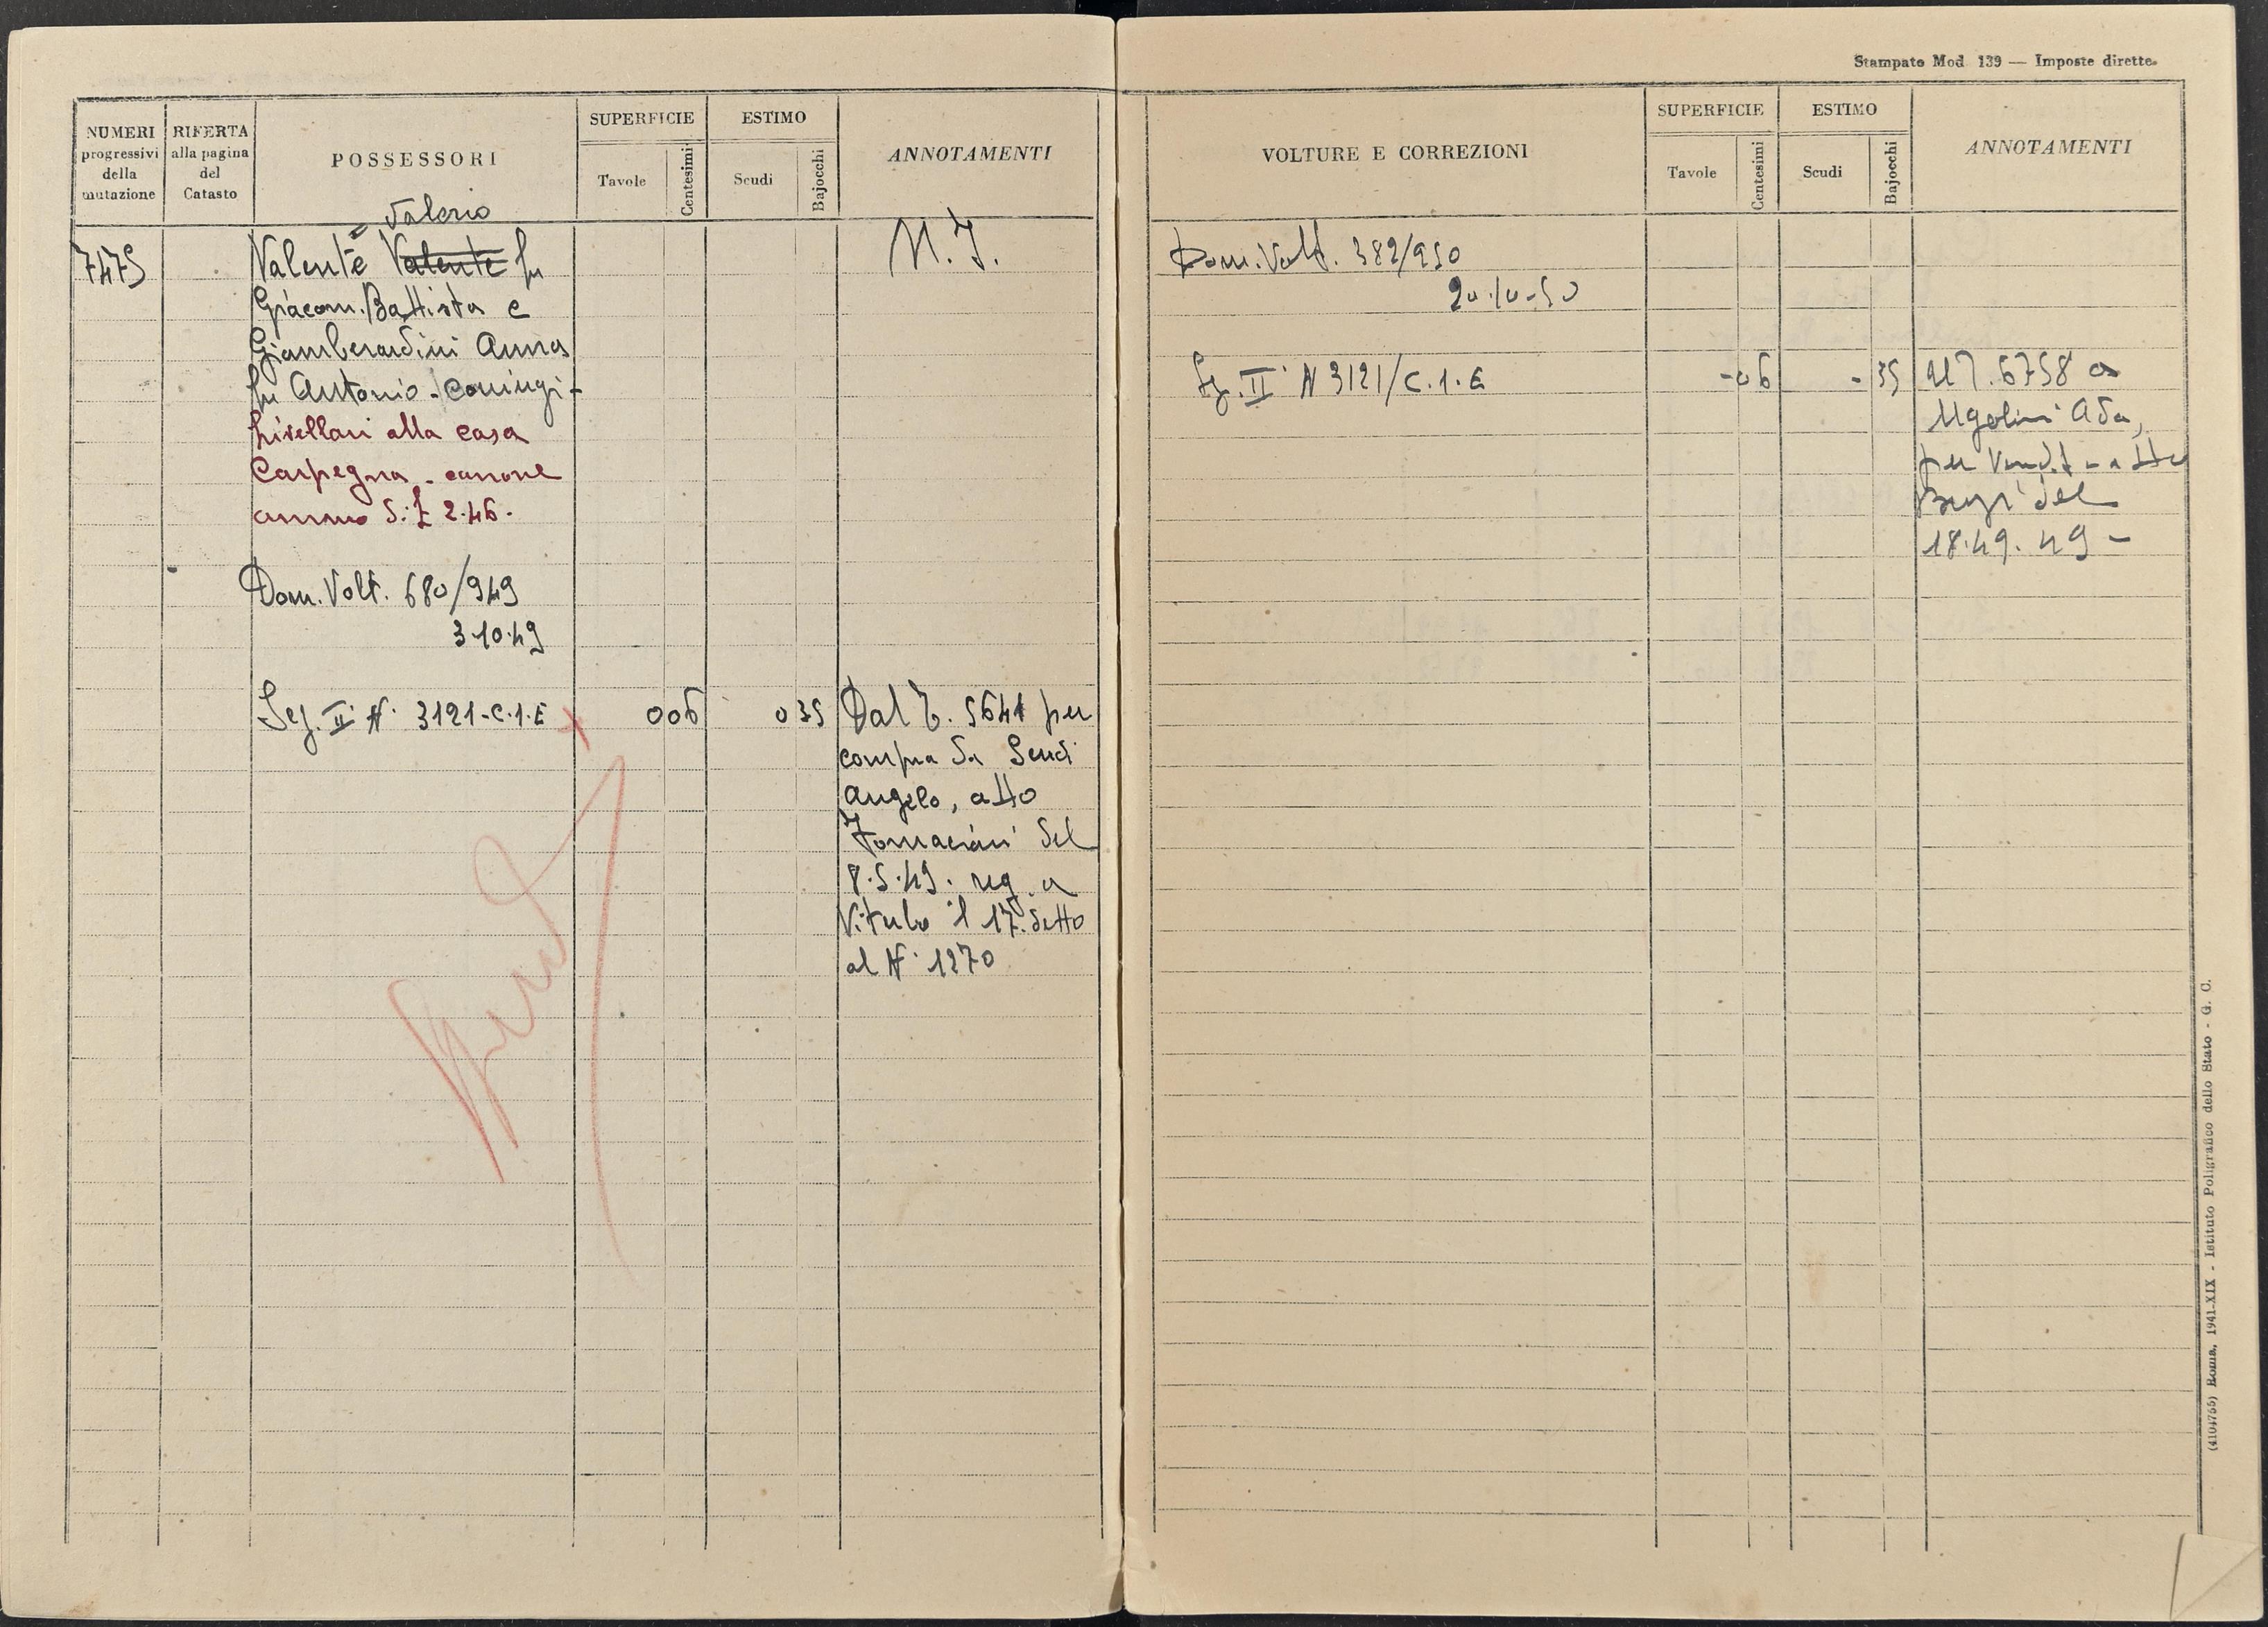 Stampato Mod 139 — Imposte dirette.
NUMERI progressivi della mutazione
RIFERTA alla pagina del Catasto
POSSESSORI
SUPERFICIE
Tavole
Centesimi
ESTIMO
Scudi
Bajocchi
ANNOTAMENTI
Valerio
7475
Valente = Valente fu
Giacom. Battista e
Giamberardini Anna
fu Antonio - coniugi -
livellari alla casa
Carpegna - canone
annuo di £ 2.46.
Dom. Volt. 680/949
3.10.49
Sez. II N. 3121-C.1.E
0 06
0 35
N. I.
Dal T. 5641 per
compra da Senci
Angelo, atto
Fornaciari del
8.5.49. reg. a
il 17. detto
al N. 1270
VOLTURE E CORREZIONI
SUPERFICIE
Tavole
Centesimi
ESTIMO
Scudi
Bajocchi
ANNOTAMENTI
Dom. Volt. 382/950
20.10.50
Sez. II N 3121/C.1.E
- 06
- 35
al T. 6758 a
Ugolini Ada,
per Vendit - atto
del
49 -
(4104765) Roma, 1941-XIX - Istituto Poligrafico dello Stato - G. C.